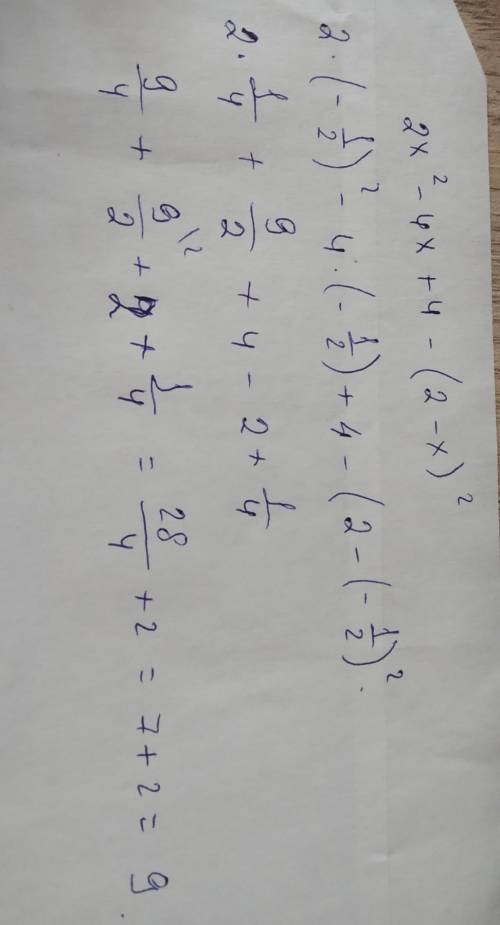 2x² - 4x + 4 - (2 - x)²
2 · (- 1/2)² - 4 · (- 1/2) + 4 - (2 - (- 1/2)² .
2 · 1/4 + 9/2 + 4 - 2 + 1/4
9/4 + 9/2 \2 + 2 + 1/4 = 28/4 + 2 = 7 + 2 = 9 .